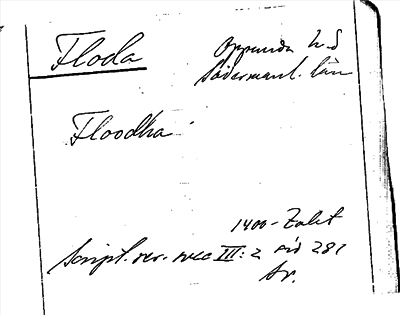 Floda
Oppunda h.d
Södermanl. län
Floodha
1400-talet
Script. rer. svec III: 2 sid 281